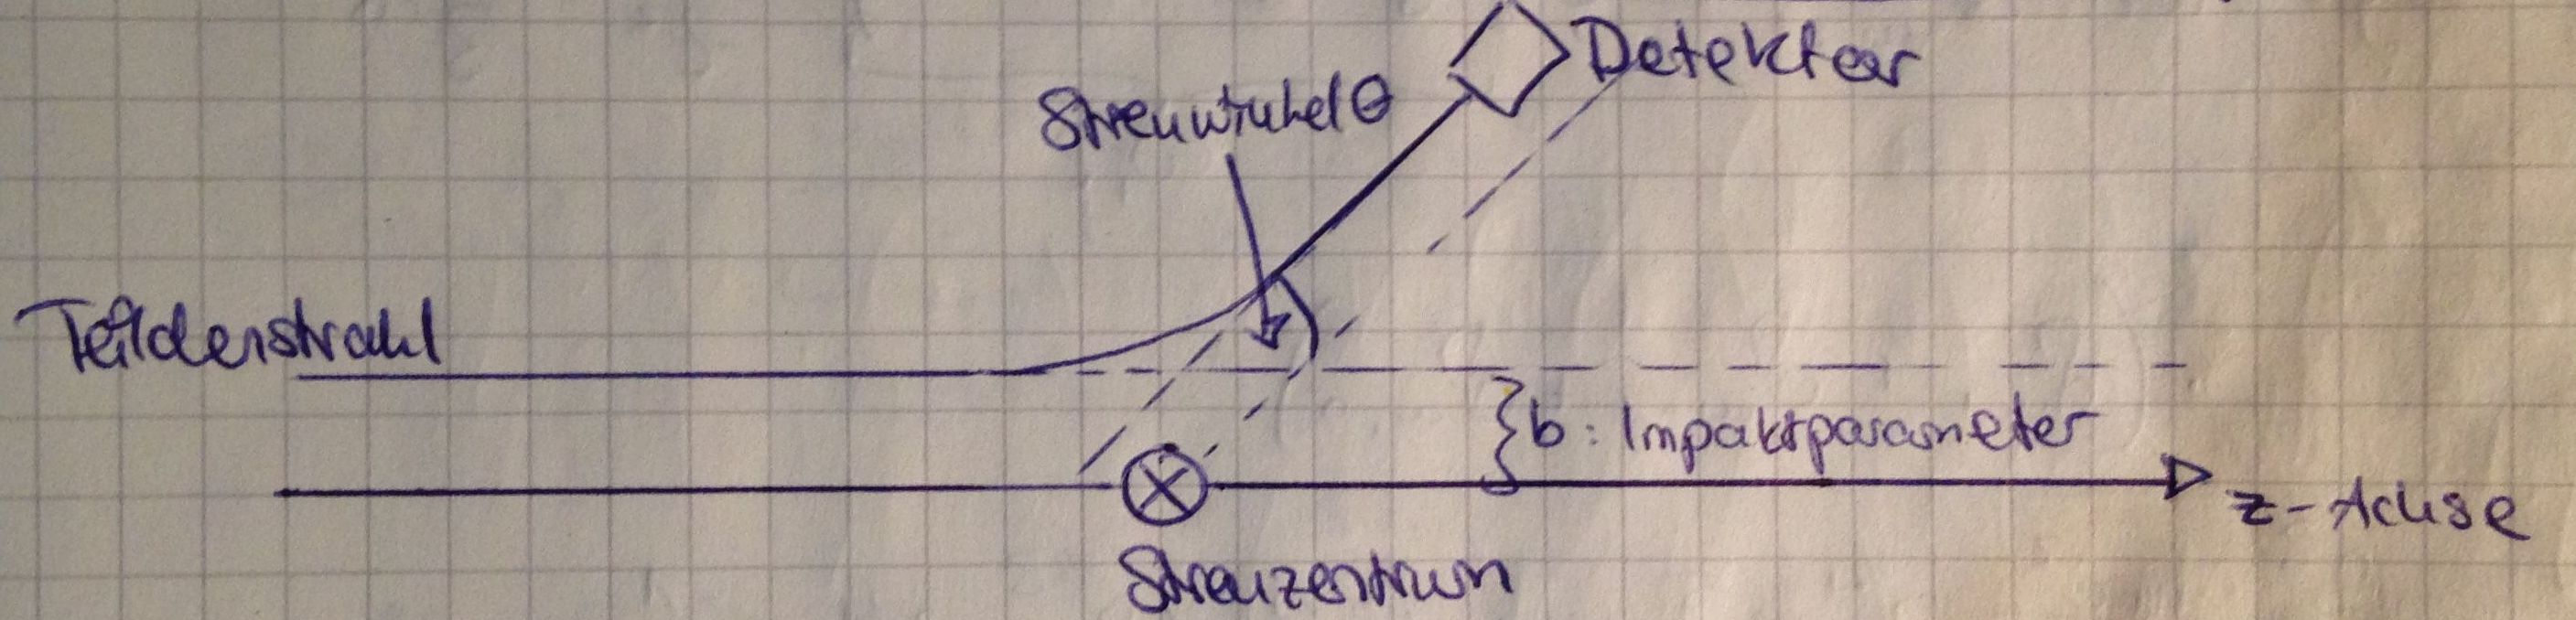 Detektor
Streuwinkel θ
Teilchenstrahl
b: Impaktparameter
z-Achse
Streuzentrum